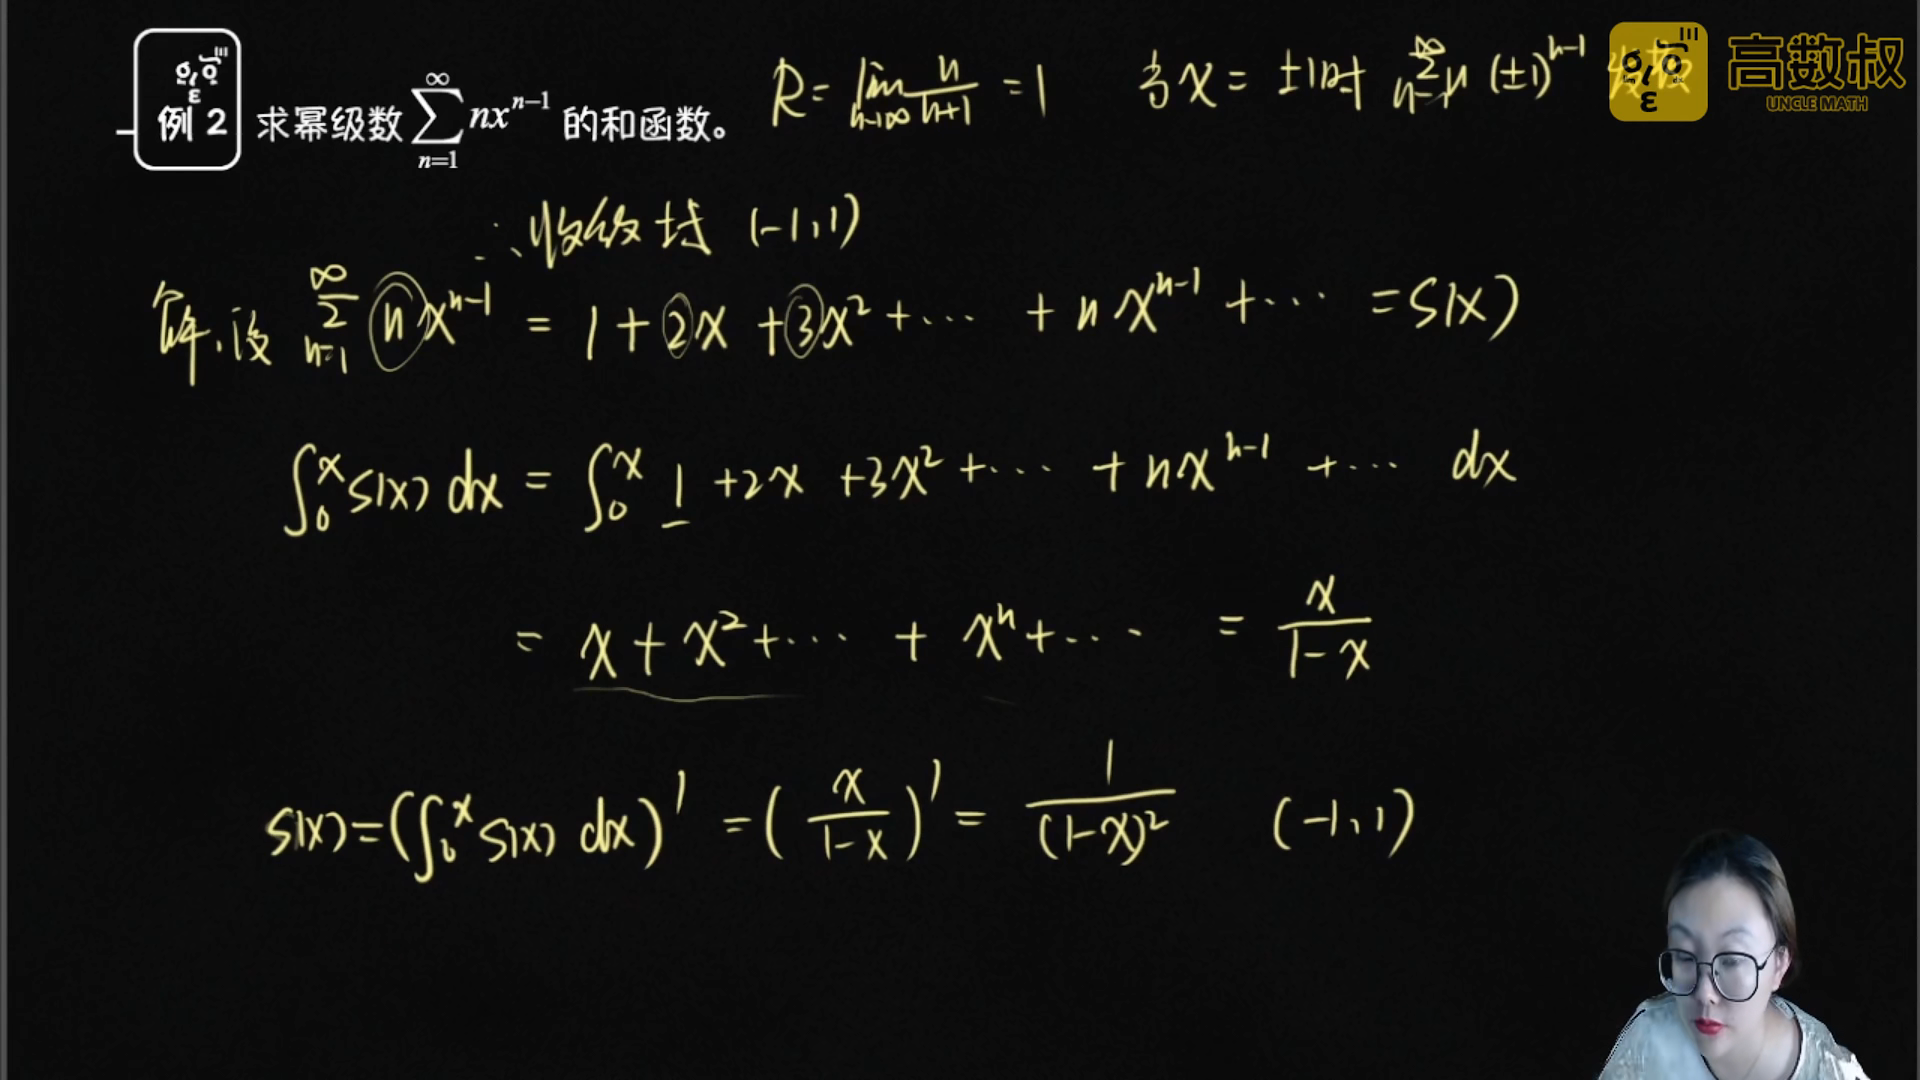 例 2 求幂级数 \sum_{n=1}^{\infty} nx^{n-1} 的和函数。 R = \lim_{n→∞} \frac{n}{n+1} = 1 当 x = ±1时 \sum_{n=1}^{∞} n (±1)^{n-1} 发散
高数叔
UNCLE MATH
∴ 收敛域 (-1,1)
解:设 \sum_{n=1}^{∞} n x^{n-1} = 1 + 2x + 3x² + ··· + n x^{n-1} + ··· = S(x)
∫_0^x S(x) dx = ∫_0^x 1 + 2x + 3x² + ··· + n x^{n-1} + ··· dx
= x + x² + ··· + x^n + ··· = \frac{x}{1-x}
S(x) = (∫_0^x S(x) dx)' = (\frac{x}{1-x})' = \frac{1}{(1-x)²} (-1,1)